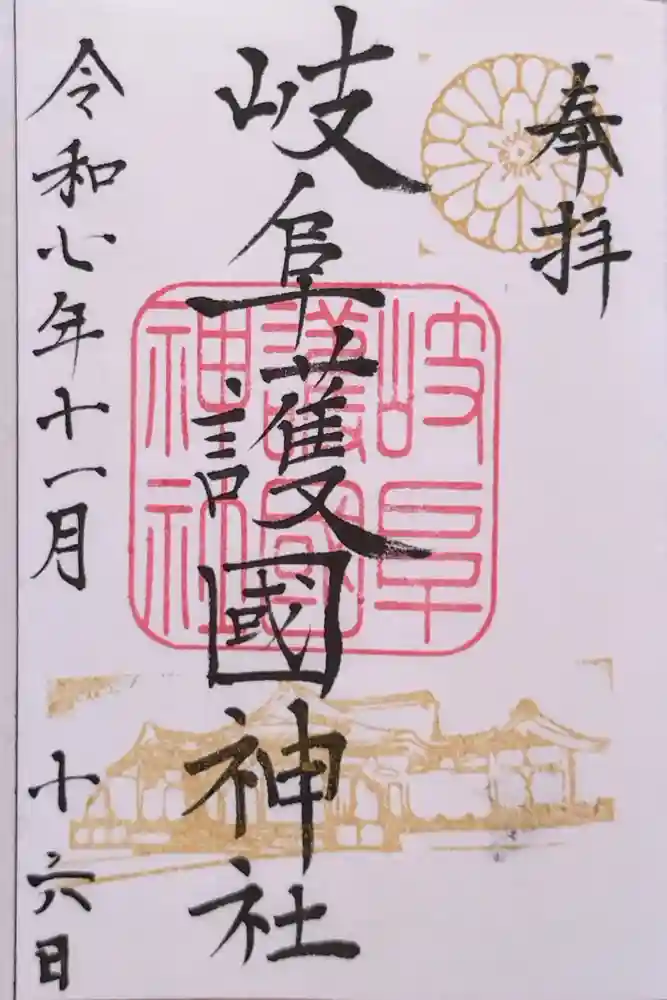 奉拝
岐阜護國神社
岐阜
護國
神社
令和年十一月十六日